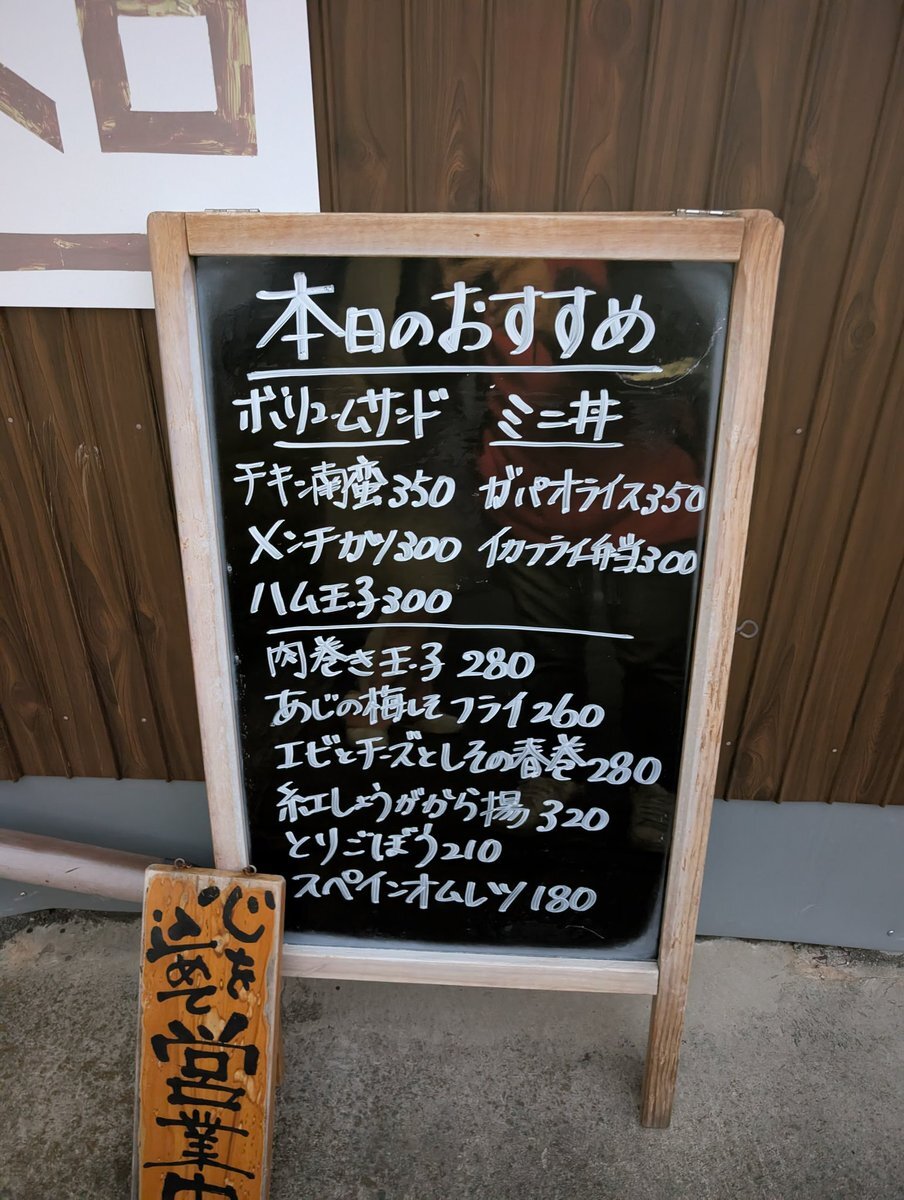 本日のおすすめ
ボリュームサンド
チキン南蛮350
メンチカツ300
ハム玉子300
ミニ丼
ガパオライス350
イカフライ弁当300
肉巻き玉子 280
あじの梅しそフライ260
エビとチーズとしその春巻280
紅しょうがから揚 320
とりごぼう210
スペインオムレツ180
心を
込めて
営業中